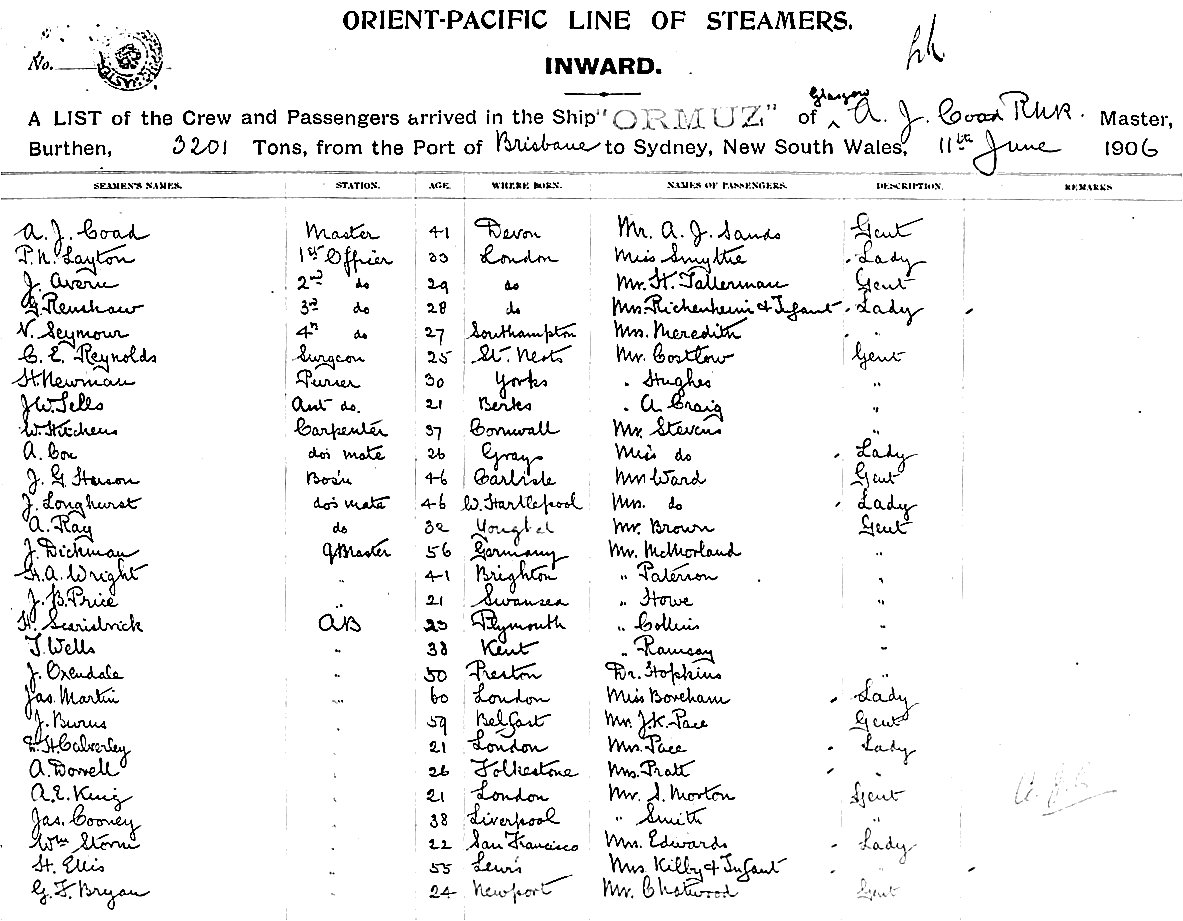 ORIENT-PACIFIC LINE OF STEAMERS.
No.
INWARD.
A LIST of the Crew and Passengers arrived in the Ship "ORMUZ" of Glasgow A. J. Coad RNR. Master,
Burthen, 3201 Tons, from the Port of Brisbane to Sydney, New South Wales, 11th June 1906
SEAMEN'S NAMES. STATION. AGE. WHERE BORN. NAMES OF PASSENGERS. DESCRIPTION. REMARKS
A. J. Coad Master 41 Devon Mr. A. J. Sands Gent
P. N. Layton 1st Officer 33 London Miss Smythe Lady
J. Avern 2nd do 29 do Mr. H. Tallerman Gent
G. Renshaw 3rd do 28 do Mrs. Richenheim & Infant Lady
N. Seymour 4th do 27 Southampton Mrs. Meredith "
C. E. Reynolds Surgeon 25 St. Neots Mr. Costlow Gent
H. Newman Purser 30 Yorks " Hughes "
J. W. Sells Asst do. 21 Berks " A. Craig "
W. Kitchens Carpenter 37 Cornwall Mr. Stevens "
A. Cox do's mate 26 Grays Miss do Lady
J. G. Bosun 46 Carlisle Mr Ward Gent
J. Longhurst do's mate 46 W. Hartlepool Mrs. do Lady
A. Ray do 32 Mr. Brown Gent
J. Dickman Q Master 56 Germany Mr. McMorland "
A. Wright " 41 Brighton " Paterson "
J. B. Price " 21 Swansea " Howe "
H. Scarisbrick AB 23 Plymouth " Collins "
T. Wells " 38 Kent " Ramsay "
J. Oxendale " 50 Preston Dr. Hopkins "
Jas. Martin " 60 London Miss Boreham Lady
J. Burns " 59 Belfast Mr. J. K. Pace Gent
E. H. Calverley " 21 London Mrs. Pace Lady
A. Dorrell " 26 Folkestone Mrs. Pratt "
A. E. King " 21 London Mr. S. Morton Gent
Jas. Cooney " 38 Liverpool " Smith "
Wm Storm " 22 San Francisco Mrs. Edwards Lady
H. Ellis " 55 Lewis Mrs Kilby & Infant "
G. F. Bryan " 24 Newport Mr. Chatwood Gent